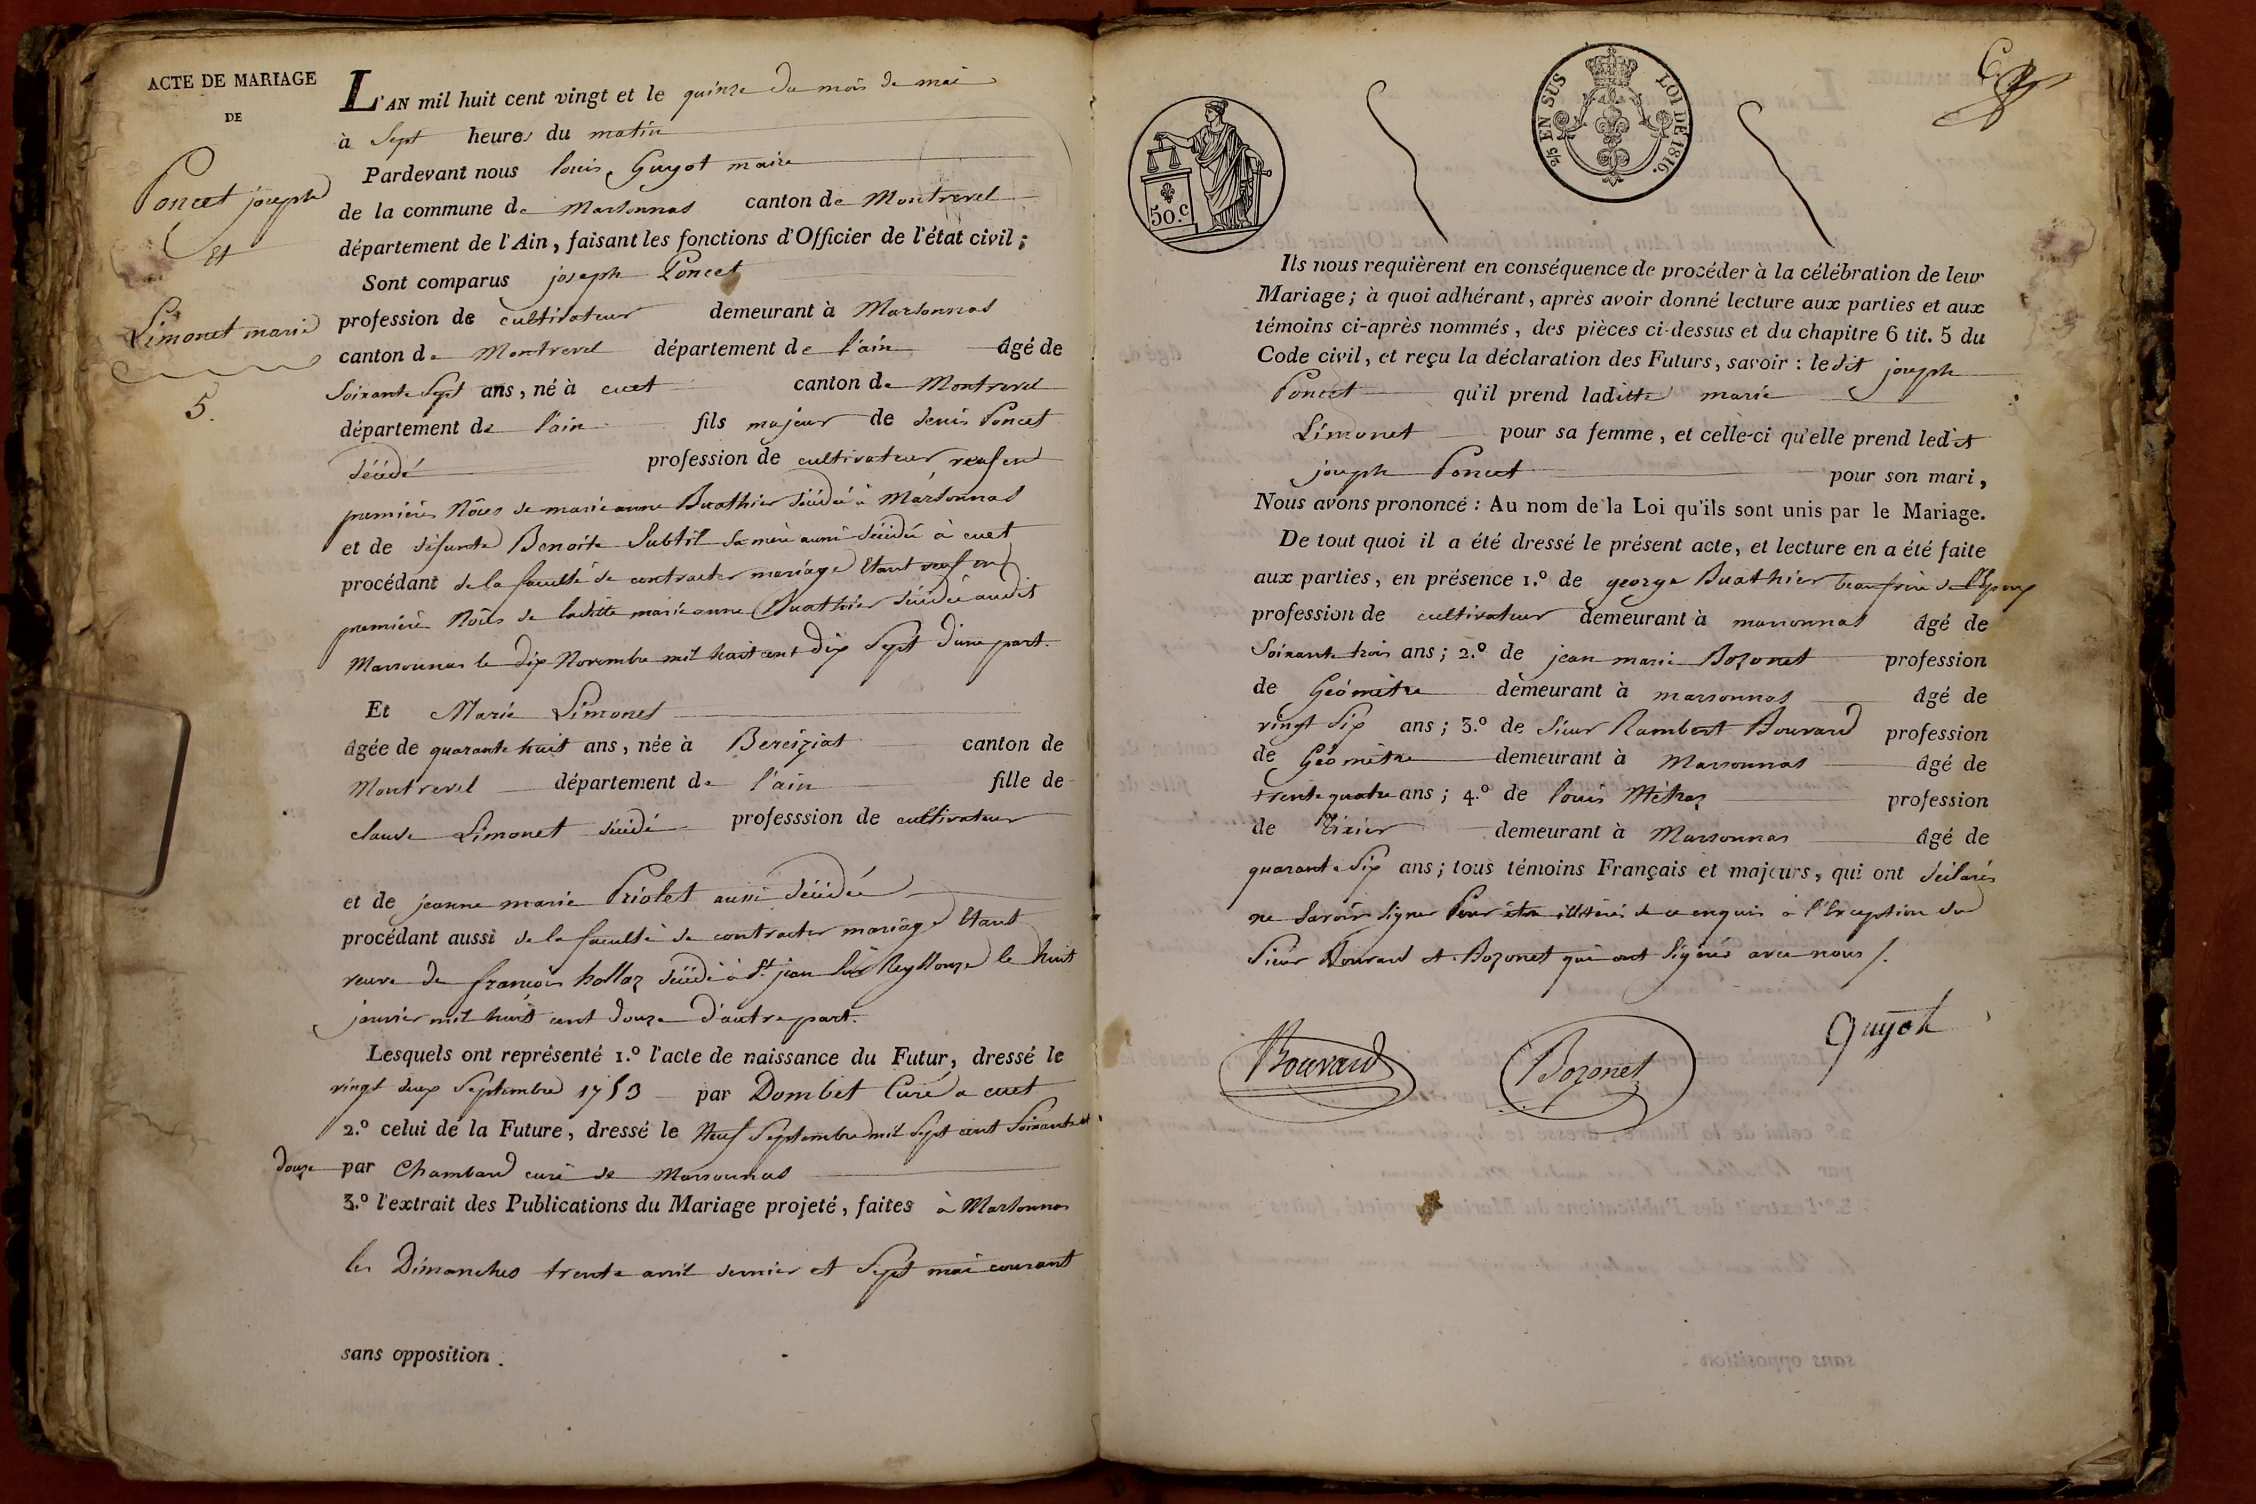 ACTE DE MARIAGE
DE
Poncet joseph
et
Limonet marie
5.
L'AN mil huit cent vingt et le quinze du mois de mai
à Sept heures du matin
Pardevant nous louis Guyot maire
de la commune de Marsonnas canton de Montrevel
département de l'Ain, faisant les fonctions d'Officier de l'état civil;
Sont comparus joseph Poncet
profession de cultivateur demeurant à Marsonnas
canton de Montrevel département de l'ain âgé de
Soixante Sept ans, né à cuet canton de Montrevel
département de l'ain fils majeur de denis Poncet
décédé profession de cultivateur veuf en
premières Nôces de marie anne Buathier décédée à Marsonnas
et de défunte Benoite Subtil sa mère aussi décédée à cuet
procédant de la faculté de contracter mariage Etant veuf en
première Nôces de laditte marie anne Buathier décédée audit
Marsonnas le dix Novembre mil huit cent dix Sept d'une part.
Et Marie Limonet
âgée de quarante huit ans, née à Bereiziat canton de
Montrevel département de l'ain fille de
claude Limonet décédé professsion de cultivateur
et de jeanne marie Priolet aussi décédée
procédant aussi de la faculté de contracter mariage Etant
veuve de françois hollaz décédé à St jean Sur Reyssouze le huit
janvier mil huit cent douze d'autre part.
Lesquels ont représenté 1.º l'acte de naissance du Futur, dressé le
vingt deux Septembre 1753 par Dombet Curé a cuet
2.º celui de la Future, dressé le Neuf Septembre mil Sept cent Soixante et
douze par Chambard curé de Marsonnas
3.º l'extrait des Publications du Mariage projeté, faites à Marsonnas
les Dimanches trente avril dernier et Sept mai courant
sans opposition.
50.c
2/5 EN SUS LOI DE 1816.
Ils nous requièrent en conséquence de procéder à la célébration de leur
Mariage; à quoi adhérant, après avoir donné lecture aux parties et aux
témoins ci-après nommés, des pièces ci-dessus et du chapitre 6 tit. 5 du
Code civil, et reçu la déclaration des Futurs, savoir: ledit joseph
Poncet qu'il prend laditte marie
Limonet pour sa femme, et celle-ci qu'elle prend ledit
joseph Poncet pour son mari,
Nous avons prononcé: Au nom de la Loi qu'ils sont unis par le Mariage.
De tout quoi il a été dressé le présent acte, et lecture en a été faite
aux parties, en présence 1.º de george Buathier beaufrère de l'Epoux
profession de cultivateur demeurant à marsonnas âgé de
Soixante trois ans; 2.º de jean marie Bozonet profession
de Géomètre demeurant à marsonnas âgé de
vingt Six ans; 3.º de Sieur Rambert Bouvard profession
de Géomètre demeurant à Marsonnas âgé de
trente quatre ans; 4.º de louis Métraz profession
de Tixier demeurant à Marsonnas âgé de
quarante Six ans; tous témoins Français et majeurs, qui ont déclarés
ne Savoir Signer Pour être illitérés de ce enquis à l'Exception du
Sieur Bouvard et Bozonet qui ont Signés avec nous /.
Bouvard Bozonet Guyot